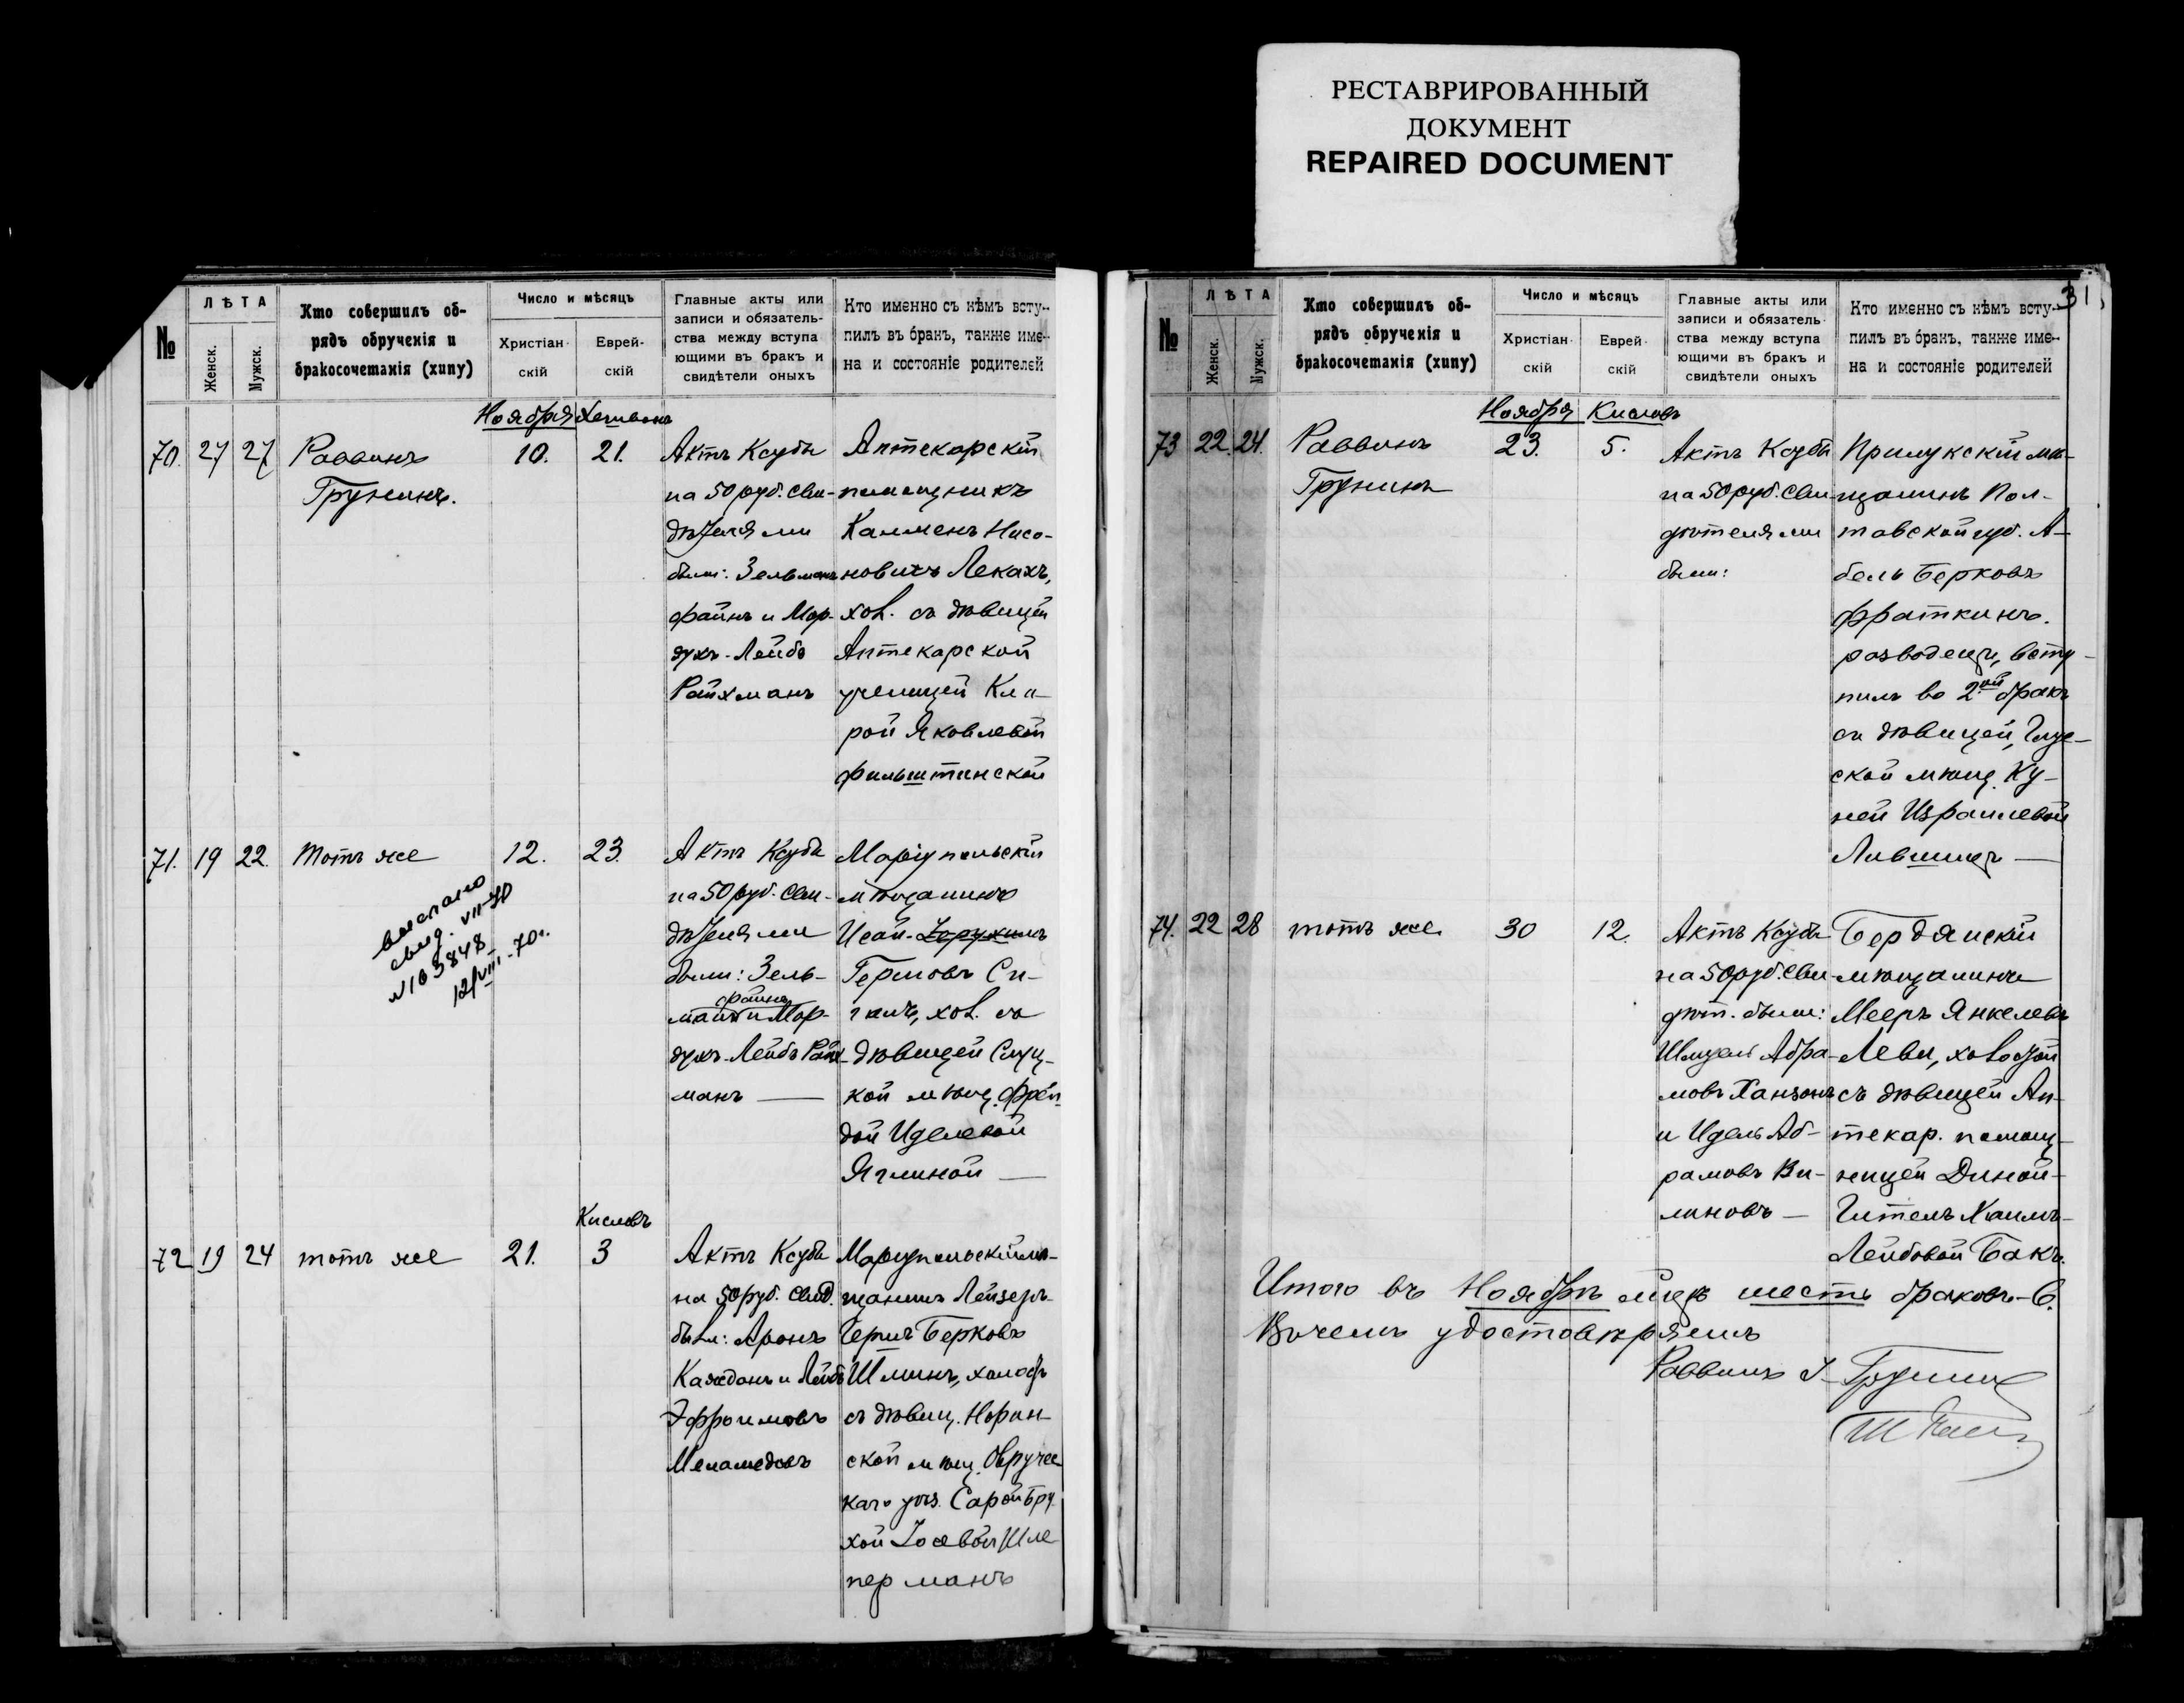 РЕСТАВРИРОВАННЫЙ
ДОКУМЕНТ
REPAIRED DOCUMENT
№
ЛѢТА
Женск.
Мужск.
Кто совершилъ об-
рядъ обрученія и
бракосочетанія (хипу)
Число и мѣсяцъ
Христіан-
скій
Еврей-
скій
Главные акты или
записи и обязатель-
ства между вступа
ющими въ бракъ и
свидѣтели оныхъ
Кто именно съ кѣмъ всту-
пилъ въ бракъ, также име-
на и состояніе родителей
Ноября Хешвонъ
70. 27 27 Раввинъ
Грунинъ.
10. 21.
Актъ Ксубы
на 50 руб. Сви-
дѣтелями
были: Зельманъ
Файнъ и Мор-
духъ-Лейбъ
Райхманъ
Аптекарскій
помощникъ
Калменъ Нисо-
новичъ Лекахъ,
хол. съ дѣвицей
Аптекарской
ученицей Кла-
рой Яковлевой
Фильштинской
71. 19 22. Тотъ же
12. 23.
выслано
свид. VII-ЯР
N163848
12/VIII-70г.
Актъ Ксубы
на 50 руб. Сви-
дѣтелями
были: Зель-
Файнъ
манъ и Мор-
духъ-Лейбъ Райх-
манъ —
Маріупольскій
мѣщанинъ
Исай-
Гершовъ Си-
галъ, хол. съ
дѣвицей Слуц-
кой мѣщ. Фрей-
дой Иделевой
Яглиной —
Кислевъ
72 19 24 тотъ же
21. 3
Актъ Ксубы
на 50 руб. Свид.
были: Аронъ
Каждонъ и Лейбъ
Эфроимовъ
Меламедовъ
Маріупольскій мѣ-
щанинъ Лейзеръ-
Гершъ Берковъ
Шлинъ, холост
съ дѣвиц. Норин-
ской мѣщ. Овручес
каго уѣз. Сарой Бру
хой Іосевой Шле
перманъ
31
№
ЛѢТА
Женск.
Мужск.
Кто совершилъ об-
рядъ обрученія и
бракосочетанія (хипу)
Число и мѣсяцъ
Христіан-
скій
Еврей-
скій
Главные акты или
записи и обязатель-
ства между вступа
ющими въ бракъ и
свидѣтели оныхъ
Кто именно съ кѣмъ всту-
пилъ въ бракъ, также име-
на и состояніе родителей
Ноября Кислевъ
73 22. 24. Раввинъ
Грунинъ
23. 5.
Актъ Ксубы
на 50 руб. Сви-
дѣтелями
были:
Прилукскій мѣ-
щанинъ Пол-
тавской губ. А-
бель Берковъ
Фраткинъ.
разводецъ, всту-
пилъ во 2ой бракъ
съ дѣвицей, Глус-
ской мѣщ. Ку-
ней Израилевой
Лившицъ —
74. 22 28 тотъ же
30 12.
Актъ Ксубы
на 50 руб. Сви-
дѣт. были:
Шлиель Абра-
мовъ Ханзонъ
и Идель Аб-
рамовъ Ви-
линовъ —
Бердянскій
мѣщанинъ
Мееръ Янкелевъ
Леви, холостой
съ дѣвицей Ап-
текар. помощ-
ницей Диной-
Гителъ Хаимъ-
Лейбовой Бакъ.
Итого въ Ноябрѣ м-цѣ шесть браковъ-6.
Въ чемъ удостовѣряемъ
Раввинъ У. Грунинъ